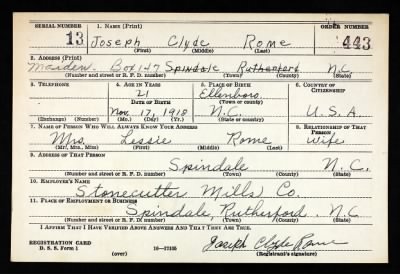 SERIAL NUMBER 1. NAME (Print) ORDER NUMBER
13 Joseph Clyde Rome 443
(First) (Middle) (Last)
2. ADDRESS (Print)
Box 147 Spindale Rutherford N.C.
(Number and street or R. F. D. number) (Town) (County) (State)
3. TELEPHONE 4. AGE IN YEARS 5. PLACE OF BIRTH 6. COUNTRY OF CITIZENSHIP
21 Ellenboro
DATE OF BIRTH (Town or county)
Nov. 17, 1918 N.C. U.S.A.
(Exchange) (Number) (Mo.) (Day) (Yr.) (State or country)
7. NAME OF PERSON WHO WILL ALWAYS KNOW YOUR ADDRESS 8. RELATIONSHIP OF THAT PERSON
Mrs. Lessie Rome Wife
(Mr., Mrs., Miss) (First) (Middle) (Last)
9. ADDRESS OF THAT PERSON
Spindale N.C.
(Number and street or R. F. D. number) (Town) (County) (State)
10. EMPLOYER'S NAME
Stonecutter Mills Co.
11. PLACE OF EMPLOYMENT OR BUSINESS
Spindale, Rutherford. N.C
(Number and street or R. F. D. number) (Town) (County) (State)
I AFFIRM THAT I HAVE VERIFIED ABOVE ANSWERS AND THAT THEY ARE TRUE.
Joseph Clyde Rome
REGISTRATION CARD
D. S. S. Form 1 16—17105 (Registrant's signature)
(over)